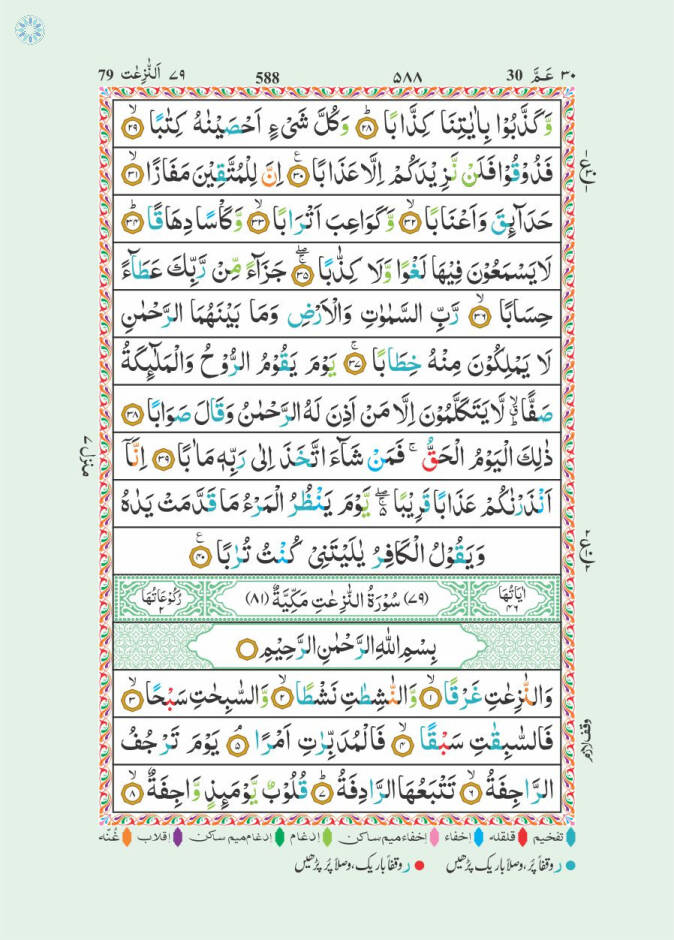 ٣٠ عَمَّ 30 ٥٨٨ 588 ٧٩ اَلنّٰزِعٰت 79
وَّكَذَّبُوْا بِاٰيٰتِنَا كِذَّابًا ۞ؕ٢٨ وَكُلَّ شَىْءٍ اَحْصَيْنٰهُ كِتٰبًا ۞ۙ٢٩
فَذُوْقُوْا فَلَنْ نَّزِيْدَكُمْ اِلَّا عَذَابًا ۞ع٣٠ اِنَّ لِلْمُتَّقِيْنَ مَفَازًا ۞ۙ٣١
حَدَآئِقَ وَاَعْنَابًا ۞ۙ٣٢ وَّكَوَاعِبَ اَتْرَابًا ۞ۙ٣٣ وَّكَاْسًا دِهَاقًا ۞ؕ٣٤
لَا يَسْمَعُوْنَ فِيْهَا لَغْوًا وَّلَا كِذّٰبًا ۞ۚ٣٥ جَزَآءً مِّنْ رَّبِّكَ عَطَآءً
حِسَابًا ۞ۙ٣٦ رَّبِّ السَّمٰوٰتِ وَالْاَرْضِ وَمَا بَيْنَهُمَا الرَّحْمٰنِ
لَا يَمْلِكُوْنَ مِنْهُ خِطَابًا ۞ۚ٣٧ يَوْمَ يَقُوْمُ الرُّوْحُ وَالْمَلٰٓئِكَةُ
صَفًّا ۙۗ لَّا يَتَكَلَّمُوْنَ اِلَّا مَنْ اَذِنَ لَهُ الرَّحْمٰنُ وَقَالَ صَوَابًا ۞٣٨
ذٰلِكَ الْيَوْمُ الْحَقُّ ۚ فَمَنْ شَآءَ اتَّخَذَ اِلٰى رَبِّهٖ مَاٰبًا ۞٣٩ اِنَّاۤ
اَنْذَرْنٰكُمْ عَذَابًا قَرِيْبًا ۖۚ يَّوْمَ يَنْظُرُ الْمَرْءُ مَا قَدَّمَتْ يَدٰهُ
وَيَقُوْلُ الْكَافِرُ يٰلَيْتَنِىْ كُنْتُ تُرٰبًا ۞ع٤٠
اٰيَاتُهَا ٤٦ (٧٩) سُوْرَةُ النّٰزِعٰتِ مَكِّيَّةٌ (٨١) رُكُوْعَاتُهَا ٢
بِسْمِ اللّٰهِ الرَّحْمٰنِ الرَّحِيْمِ
وَالنّٰزِعٰتِ غَرْقًا ۞ۙ١ وَّالنّٰشِطٰتِ نَشْطًا ۞ۙ٢ وَّالسّٰبِحٰتِ سَبْحًا ۞ۙ٣
فَالسّٰبِقٰتِ سَبْقًا ۞ۙ٤ فَالْمُدَبِّرٰتِ اَمْرًا ۞ۘ٥ يَوْمَ تَرْجُفُ
الرَّاجِفَةُ ۞ۙ٦ تَتْبَعُهَا الرَّادِفَةُ ۞ؕ٧ قُلُوْبٌ يَّوْمَئِذٍ وَّاجِفَةٌ ۞ۙ٨
منزل ٧
وقف لازم
تفخیم قلقلہ اِخفاء اِخفاء میم ساکن اِدغام اِدغام میم ساکن اِقلاب غُنّہ
ر وقفاً پُر، وصلاً باریک پڑھیں ر وقفاً باریک، وصلاً پُر پڑھیں